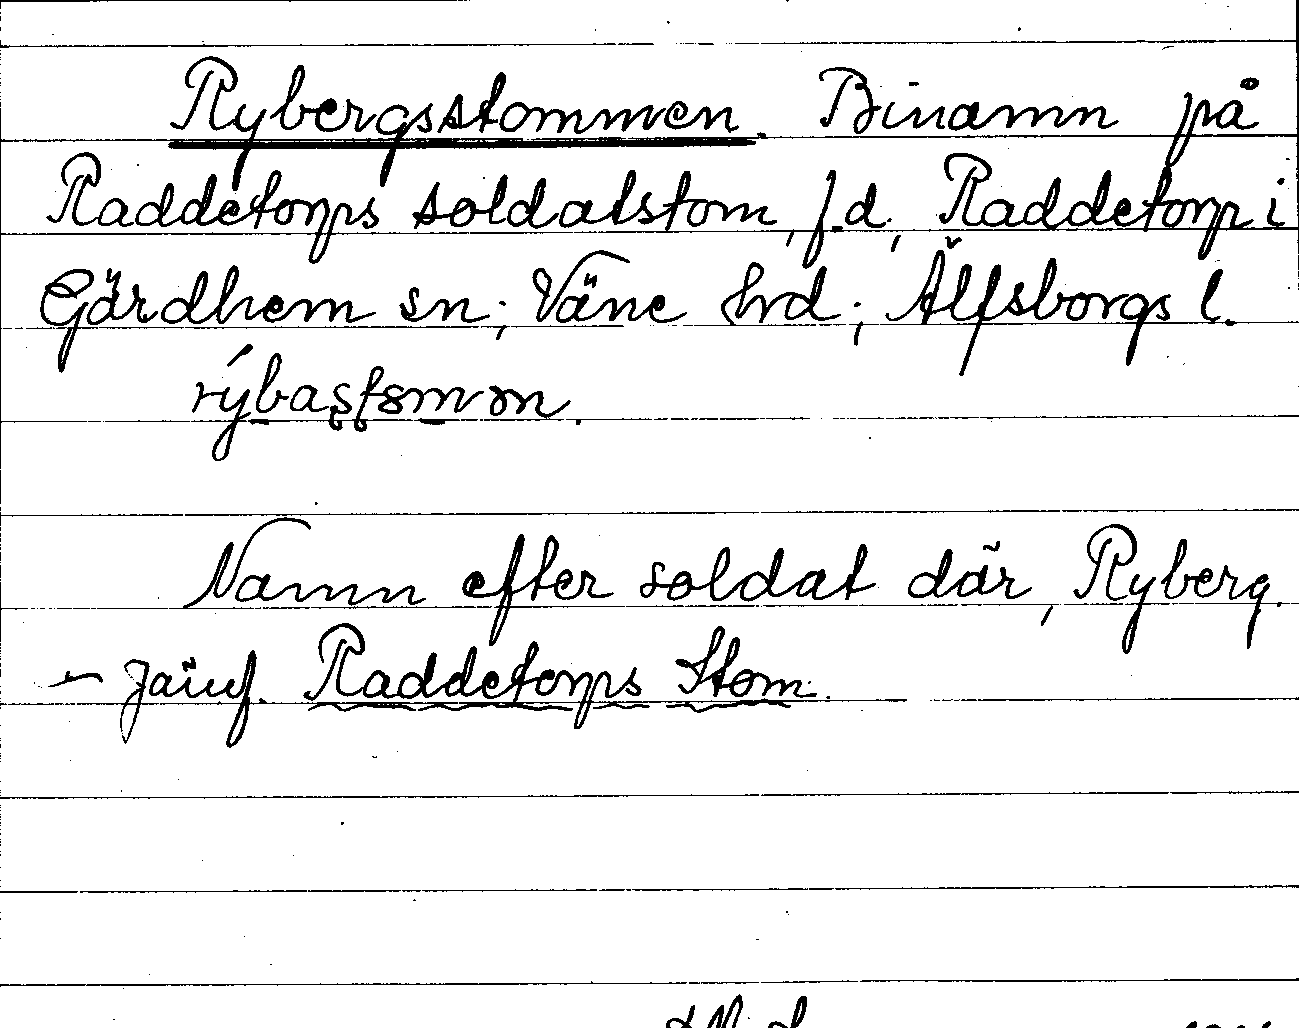 Rybergsstommen. Binamn på
Raddetorps soldatstom, f.d., Raddetorp i
Gärdhem sn; Väne hrd; Älfsborgs l.
Namn efter soldat där, Ryberg.
– Jämf. Raddetorps Stom.